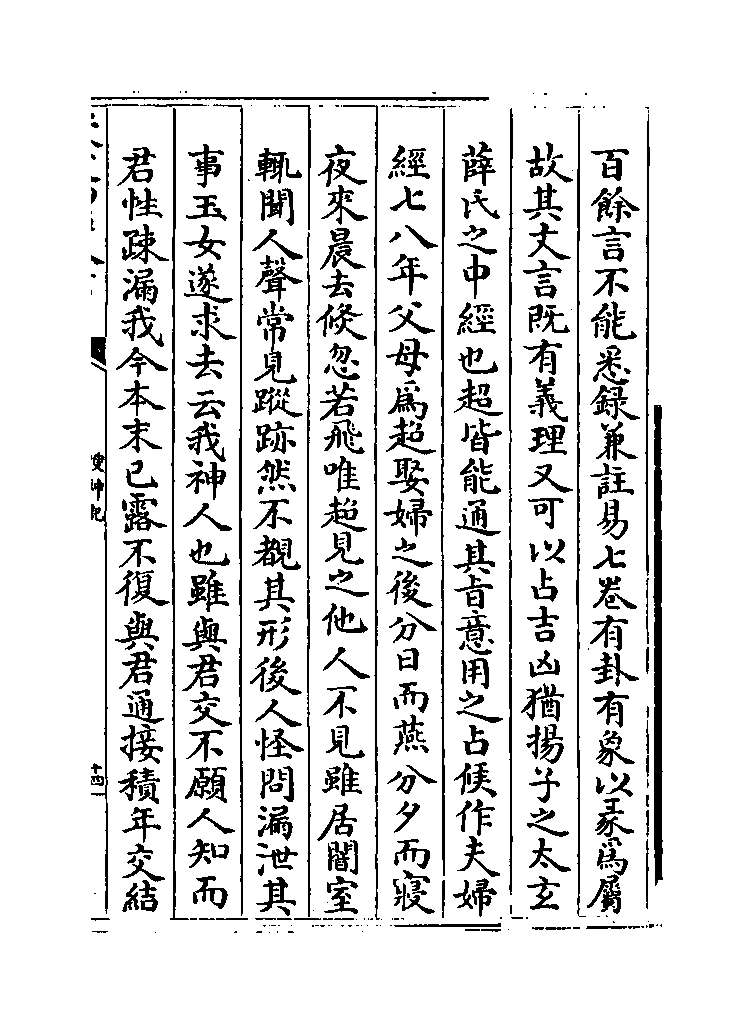 百餘言不能悉録兼註易七卷有卦有象以彖為屬
故其文言既有義理又可以占吉凶猶揚子之太玄
薛氏之中經也超皆能通其旨意用之占候作夫婦
經七八年父母為超娶婦之後分日而燕分夕而寢
夜來晨去倐忽若飛唯超見之他人不見雖居闇室
輒聞人聲常見蹤跡然不覩其形後人怪問漏泄其
事玉女遂求去云我神人也雖與君交不願人知而
君性疎漏我今本末已露不復與君通接積年交結
搜神記
十四